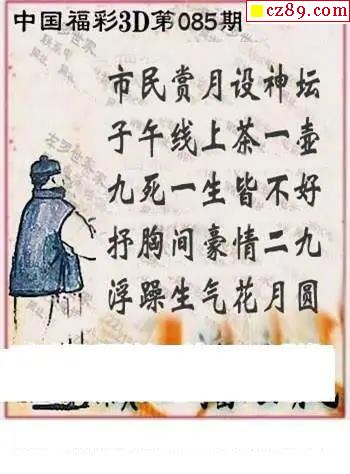 cz89.com
中国福彩3D第085期
市民赏月设神坛
子午线上茶一壶
九死一生皆不好
抒胸间豪情二九
浮躁生气花月圆